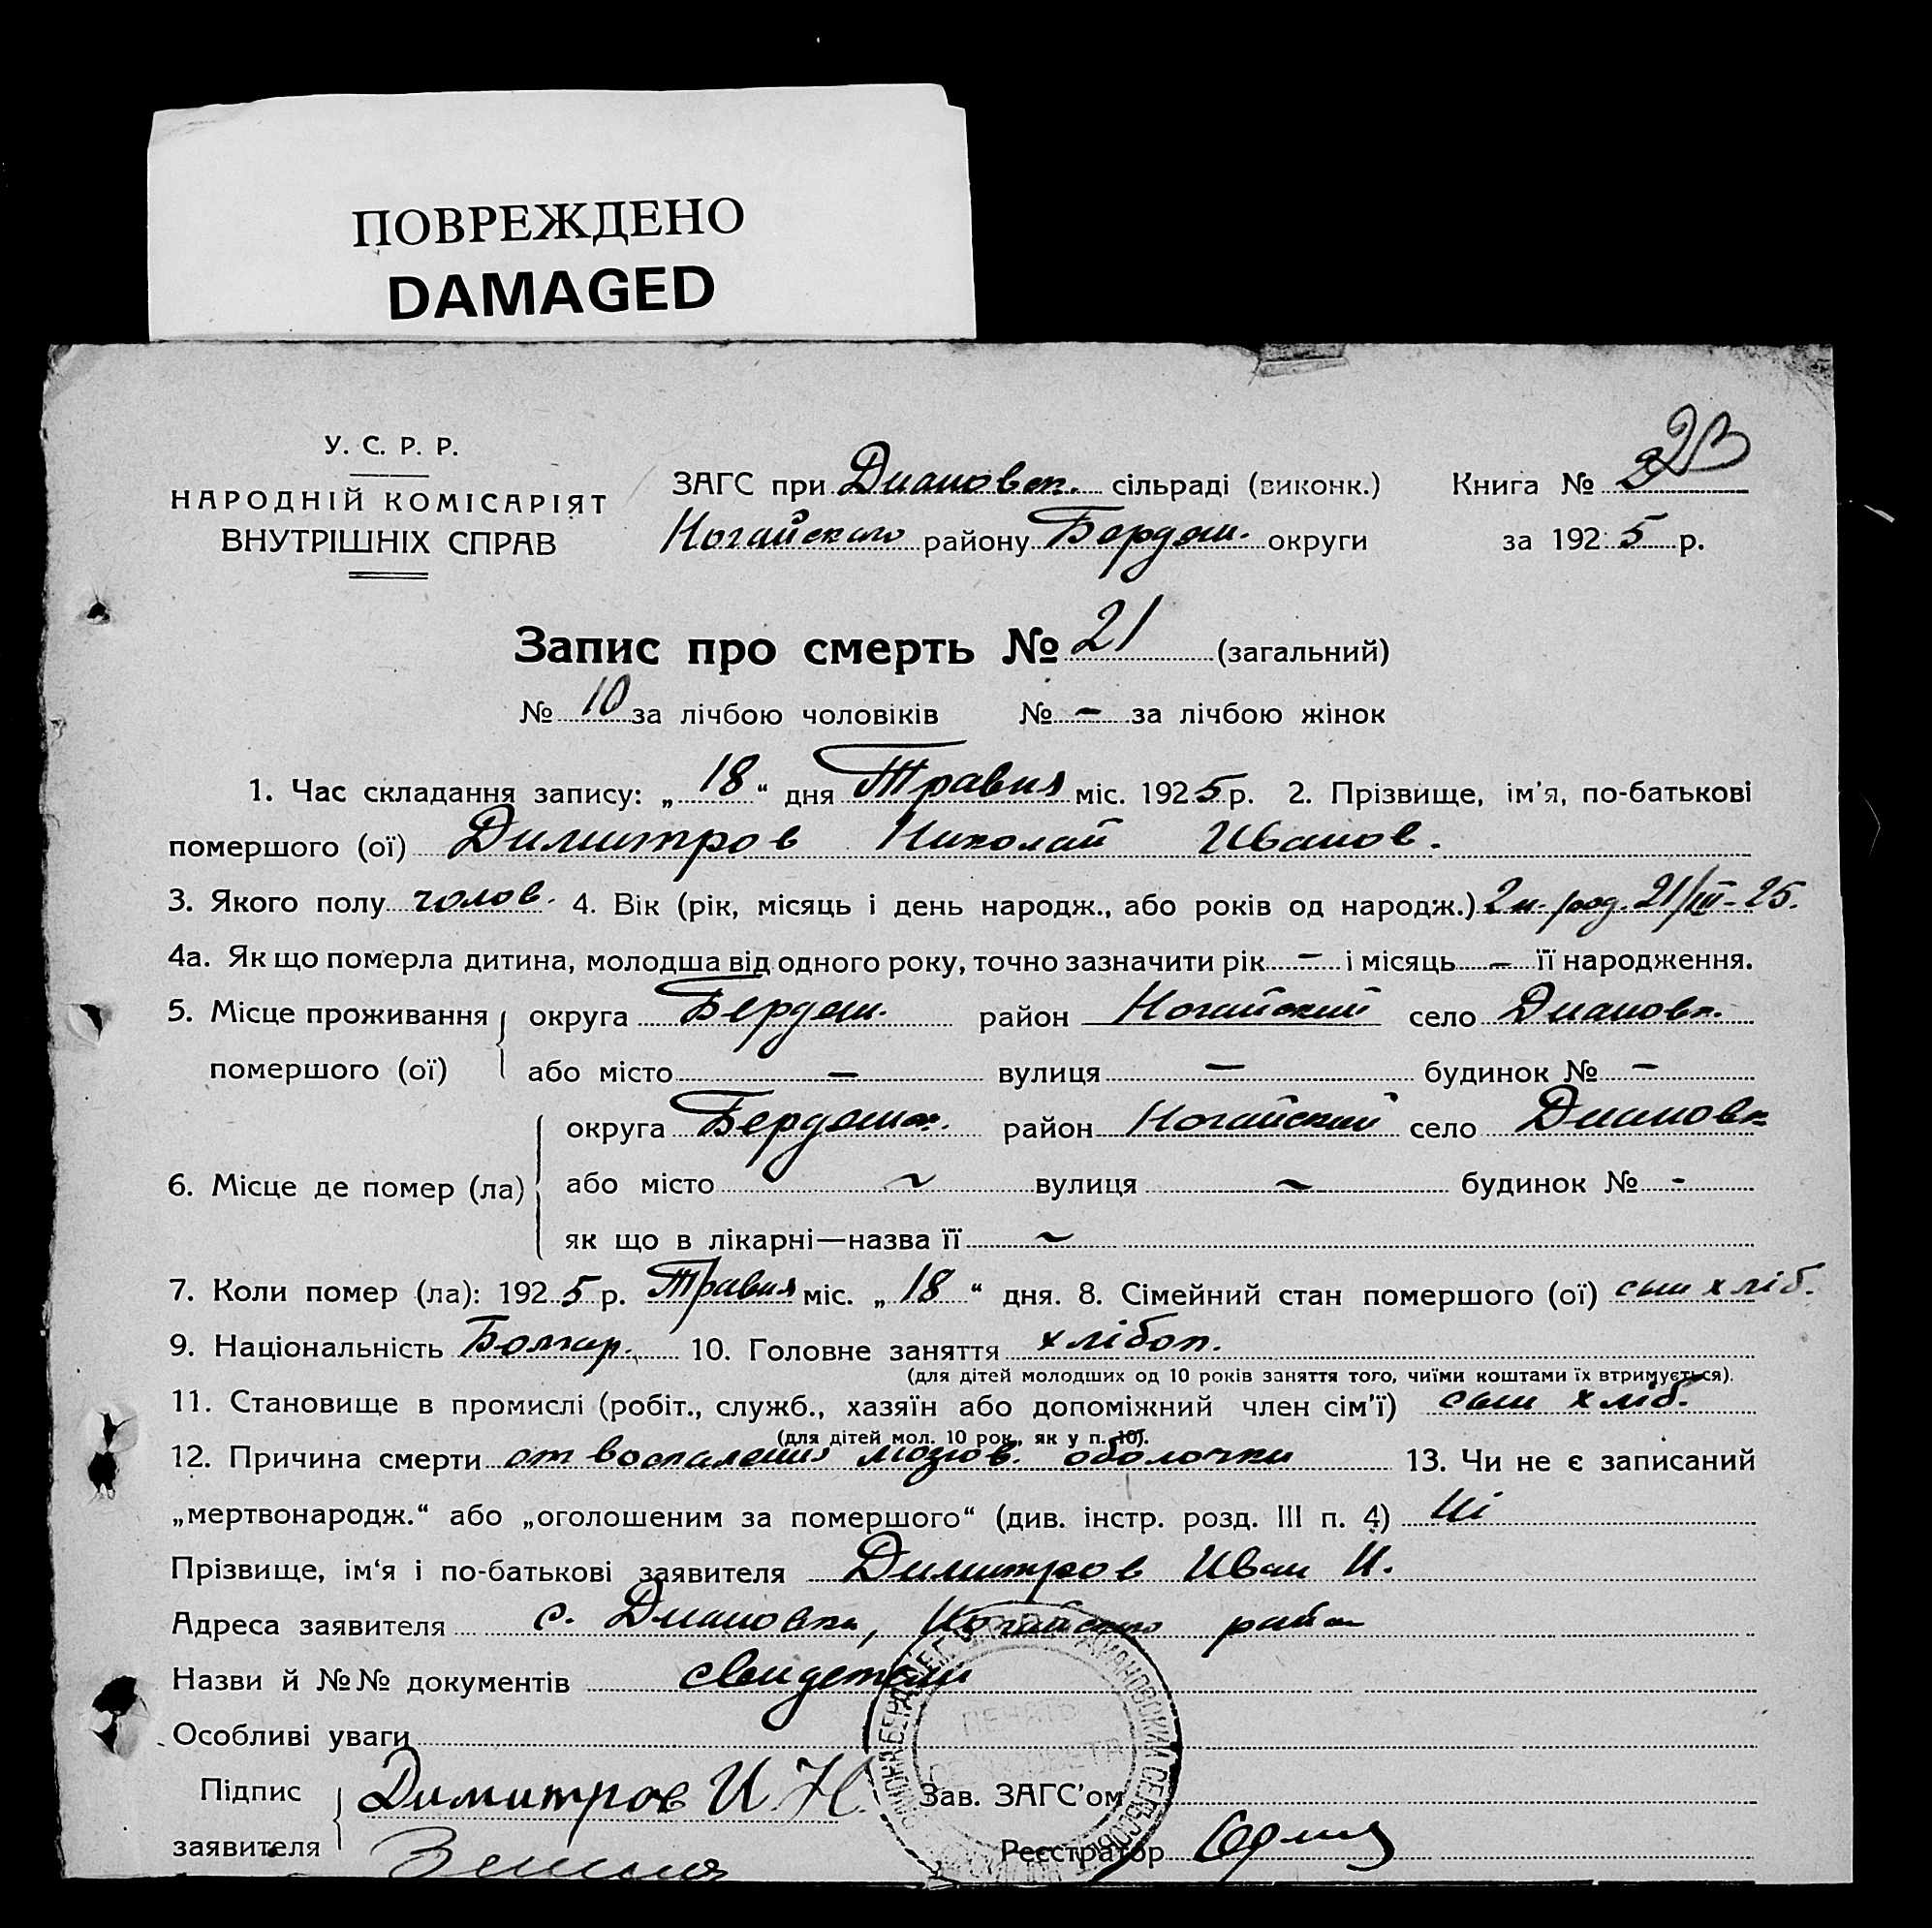 ПОВРЕЖДЕНО
DAMAGED
У. С. Р. Р.
НАРОДНІЙ КОМІСАРІЯТ
ВНУТРІШНІХ СПРАВ
ЗАГС при Диановск. сільраді (виконк.)
Ногайского району Бердян. округи
Книга № 23
за 1925 р.
Запис про смерть № 21 (загальний)
№ 10 за лічбою чоловіків № - за лічбою жінок
1. Час складання запису: „18“ дня Травня міс. 1925 р. 2. Прізвище, ім'я, по-батькові
помершого (ої) Димитров Николай Иванов.
3. Якого полу чолов. 4. Вік (рік, місяць і день народж., або років од народж.) 2 м. род. 21/III-25.
4а. Як що померла дитина, молодша від одного року, точно зазначити рік - і місяць - її народження.
5. Місце проживання помершого (ої) округа Бердян. район Ногайский село Диановк.
або місто - вулиця - будинок № -
6. Місце де помер (ла) округа Бердянск. район Ногайский село Диановк
або місто ~ вулиця ~ будинок № -
як що в лікарні—назва її ~
7. Коли помер (ла): 1925 р. Травня міс. „18“ дня. 8. Сімейний стан помершого (ої) сын хліб.
9. Національність Болгар. 10. Головне заняття хлібоп.
(для дітей молодших од 10 років заняття того, чиїми коштами їх втримується).
11. Становище в промислі (робіт., служб., хазяїн або допоміжний член сім'ї) сын хліб.
(для дітей мол. 10 рок., як у п. 10).
12. Причина смерти от воспаления мозгов. оболочки 13. Чи не є записаний
„мертвонародж.“ або „оголошеним за помершого“ (див. інстр. розд. III п. 4) Ні
Прізвище, ім‘я і по-батькові заявителя Димитров Иван Н.
Адреса заявителя с. Диановка, Ногайского район
Назви й №№ документів свидетели
Особливі уваги
Підпис заявителя Димитров И. Н. Зав. ЗАГС'ом
Реєстратор